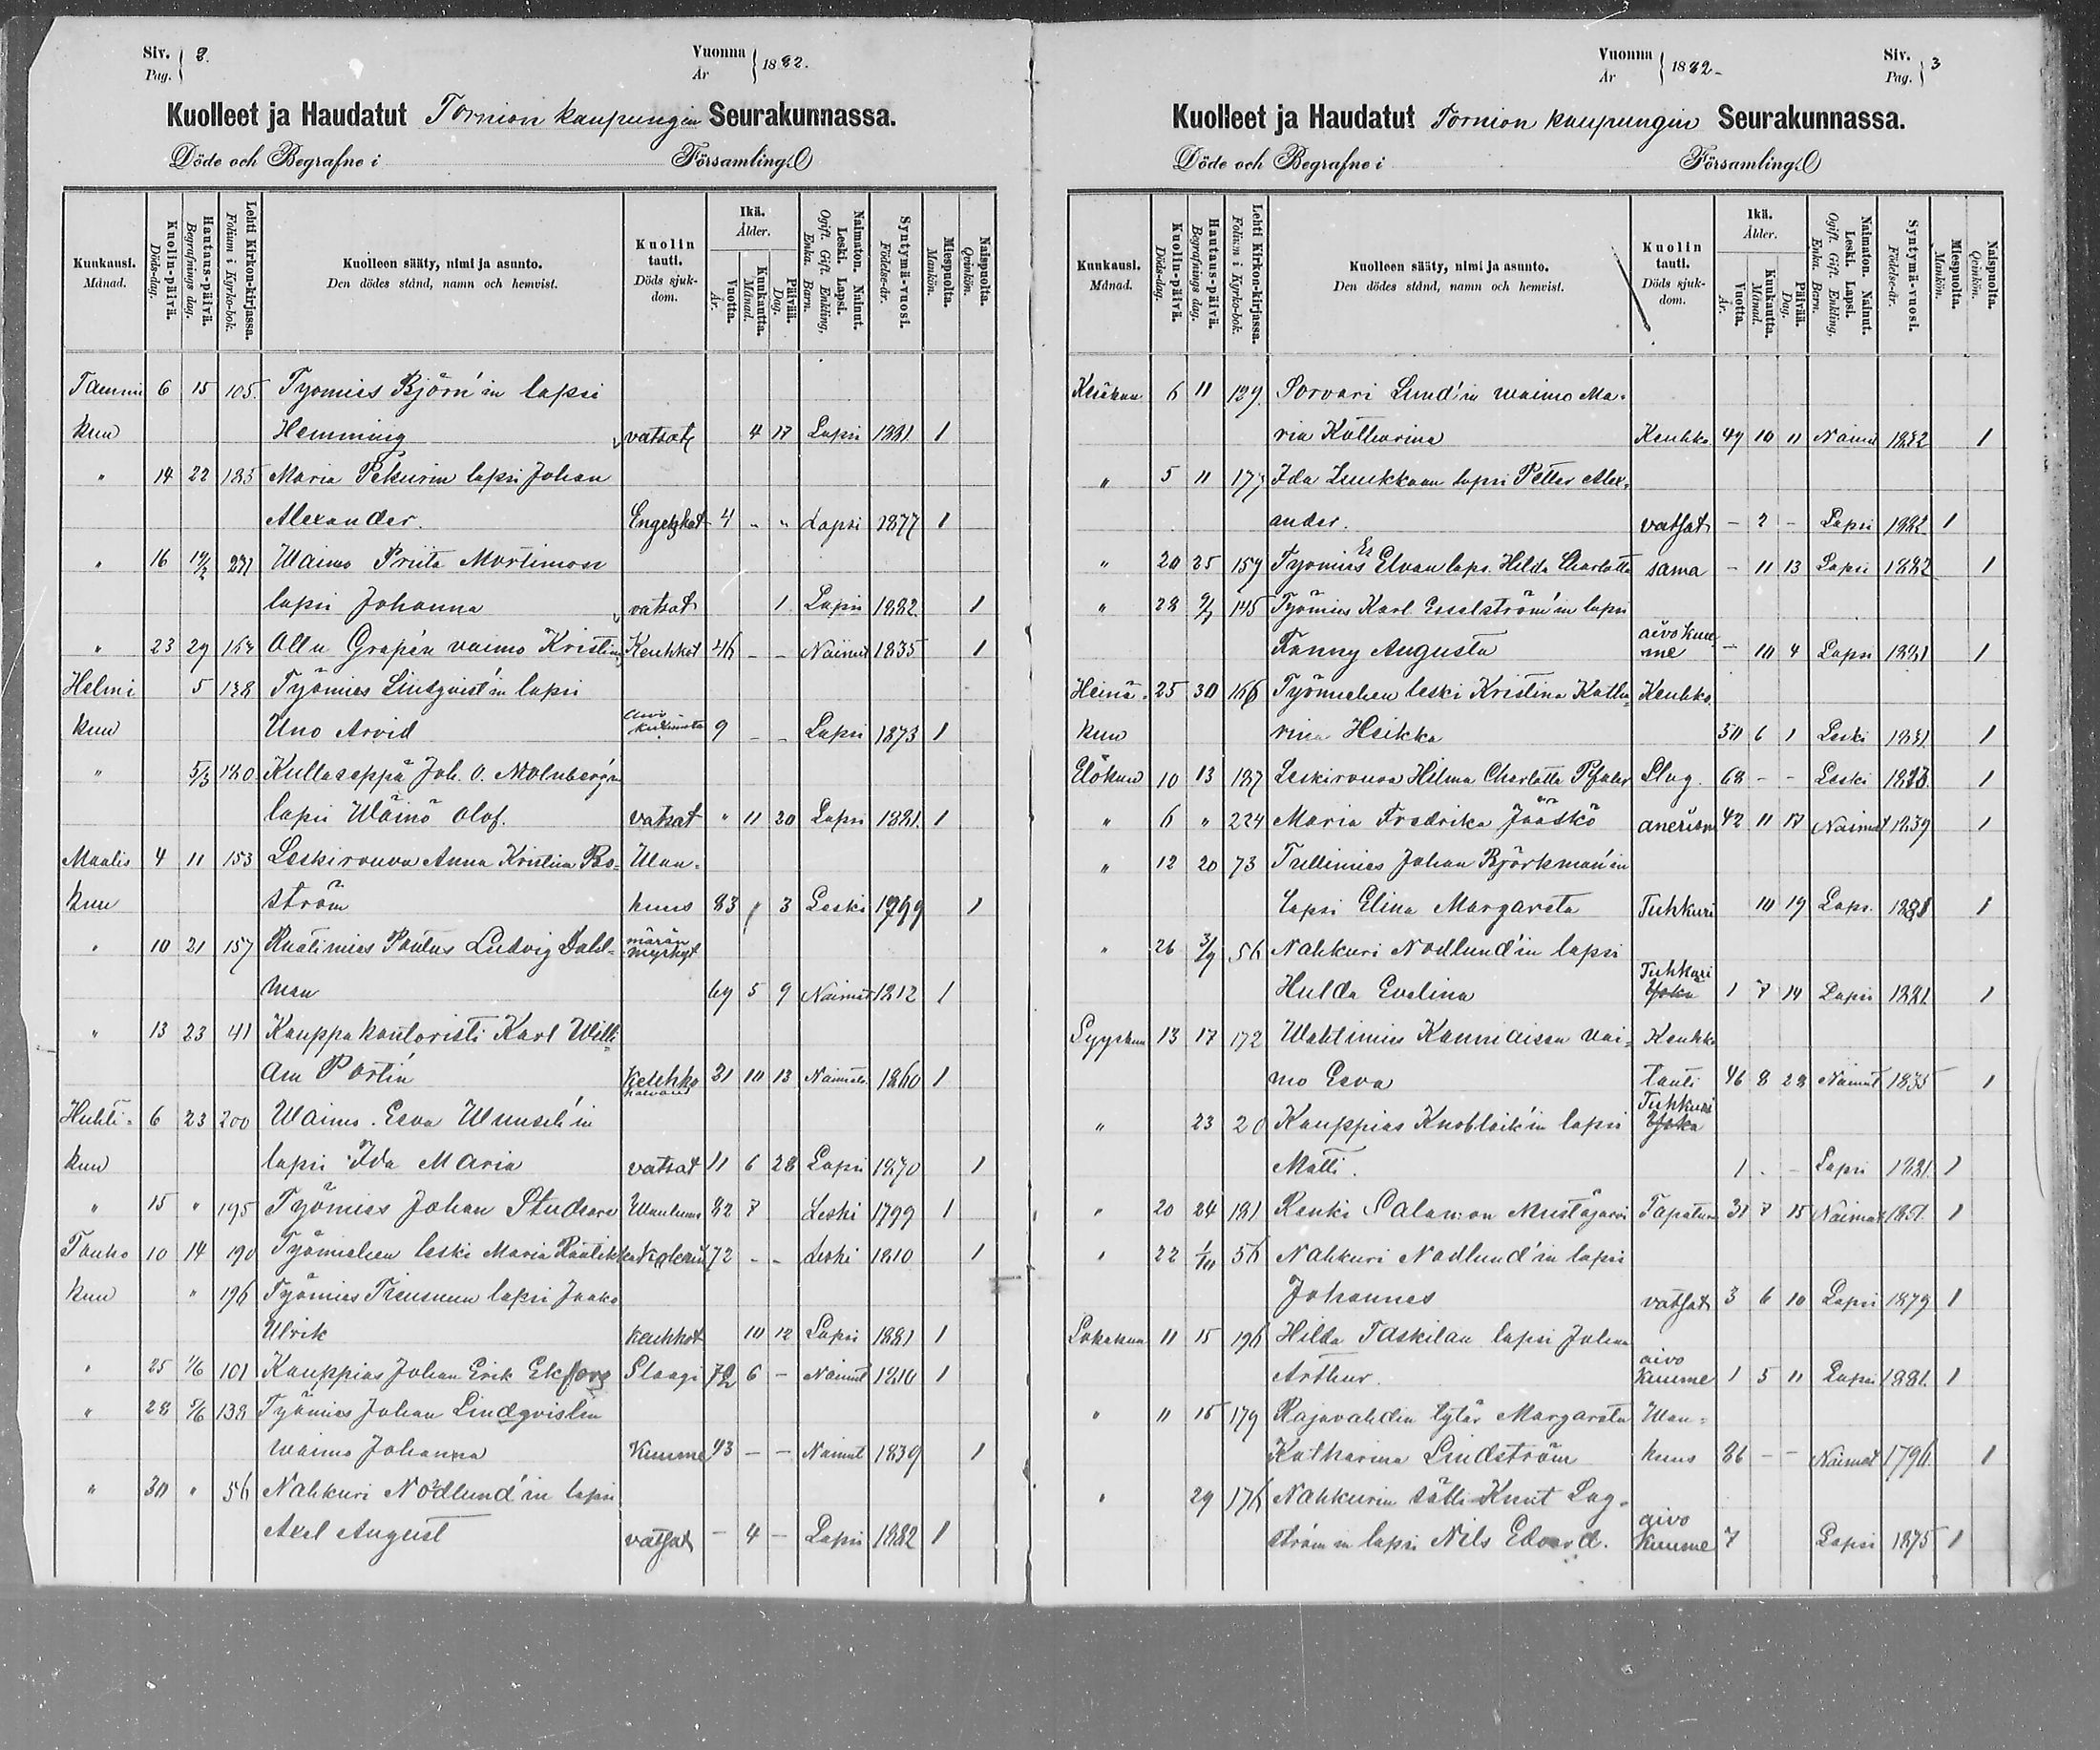 Siv. Pag. 2.
Vuonna År 1882.
Kuolleet ja Haudatut Tornion kaupungin Seurakunnassa.
Döde och Begrafne i Församling.
Kuukausi. Månad.
Kuolin-päivä. Döds-dag.
Hautaus-päivä. Begrafnings dag.
Lehti Kirkon-kirjassa. Folium i Kyrko-bok.
Kuolleen sääty, nimi ja asunto. Den dödes stånd, namn och hemvist.
Kuolin tauti. Döds sjukdom.
Ikä. Ålder.
Vuotta. År.
Kuukautta. Månad.
Päivää. Dag.
Naimaton. Nainut. Leski. Lapsi. Ogift. Gift. Enkling, Enka. Barn.
Syntymä-vuosi. Födelse-år.
Miespuolta. Mankön.
Naispuolta. Qvinkön.
Tammi 6 15 105. Tyomies Björn'in lapsi
kuu Hemming vatsat 4 17 Lapsi 1881 1
" 14 22 185 Maria Pekurin lapsi Johan
Alexander. 4 " " Lapsi 1877 1
" 16 Waimo Priita Martimon
lapsi Johanna vatsat 1 Lapsi 1882 1
" 23 29 Olli Grapen vaimo Kristina Keuhkot 46 - - Nainut 1835 1
Helmi 5 138 Työmies Lindqvist'in lapsi
kuu Uno Arvid 9 - - Lapsi 1873 1
" 5/3 180 Kullaseppä Joh. O. Molnberg'in
lapsi Wäinö Olof. vatsat " 11 20 Lapsi 1881. 1
Maalis 4 11 153 Leskirouva Anna Kristina Bo- Wan-
kuu ström huus 83 " 3 Leski 1799 1
" 10 21 157 Raatimies Paulus Ludvig Dahl-
man 69 5 9 Nainut 1812 1
" 13 23 41 Kauppakontoristi Karl Willi
am Portin Keuhko 21 10 13 Naimato 1860 1
Huhti- 6 23 200 Waimo Eeva Wunsch'in
kuu lapsi Ida Maria vatsat 11 6 28 Lapsi 1870 1
" 15 " 195 Työmies Johan Studsare Wanhuus 82 7 Leski 1799 1
Touko 10 14 190 Työmiehen leski Maria 72 - - Leski 1810 1
kuu " 196 Työmies lapsi Jaako
Ulrik Keuhkot 10 12 Lapsi 1881 1
" 25 1/6 101 Kauppias Johan Erik Ekforg Slaagi 72 6 - Nainut 1810 1
" 28 5/6 138 Työmies Johan Lindqvistin
waimo Johanna Kuume 43 - - Nainut 1839 1
" 30 " 56 Nahkuri Nodlund'in lapsi
Axel August vatsat - 4 - Lapsi 1882 1
Vuonna År 1882-
Siv. Pag. 3
Kuolleet ja Haudatut Tornion kaupungin Seurakunnassa.
Döde och Begrafne i Församling.
Kuukausi. Månad.
Kuolin-päivä. Döds-dag.
Hautaus-päivä. Begrafnings dag.
Lehti Kirkon-kirjassa. Folium i Kyrko-bok.
Kuolleen sääty, nimi ja asunto. Den dödes stånd, namn och hemvist.
Kuolin tauti. Döds sjukdom.
Ikä. Ålder.
Vuotta. År.
Kuukautta. Månad.
Päivää. Dag.
Naimaton. Nainut. Leski. Lapsi. Ogift. Gift. Enkling, Enka. Barn.
Syntymä-vuosi. Födelse-år.
Miespuolta. Mankön.
Naispuolta. Qvinkön.
Kesäkuu 6 11 129. Sorvari Lund'in waimo Ma-
ria Katharina Keuhko 49 10 11 Nainut 1832 1
" 5 11 177 Ida Luukkaan lapsi Petter Alex-
ander. vatsat - 2 - Lapsi 1882 1
" 20 25 159 Tyomies Elvan laps. Hilda Charlotta sama - 11 13 Lapsi 1882 1
" 28 9/7 145 Työmies Karl Esselström'in lapsi
Fanny Augusta aivokuume - 10 4 Lapsi 1881 1
Heinä- 25 30 166 Työmiehen leski Kristina Katha- Keuhko.
kuu rina Heikka 50 6 1 Leski 1831. 1
Elokuu 10 13 187 Leskirouva Hilma Charlotta Pfaler Slag. 68 - - Leski 1
" 6 " 224 Maria Fredrika Jääskö anerism 42 11 17 Nainut 1839 1
" 12 20 73 Tullimies Johan Björkman'in
lapsi Elina Margareta Tuhkuri 10 19 Laps. 1881 1
" 26 3/9 56 Nahkuri Nodlund'in lapsi
Hulda Evelina Tuhkuri 1 7 14 Lapsi 1881 1
Syyskuu 13 17 172 Wahtimies Kanniaisen vai- Keuhko
mo Eeva tauti 46 8 28 Nainut 1835 1
" 23 20 Kauppias Knoblok'in lapsi Tuhkuri
Matti. 1 - - Lapsi 1881. 1
" 20 24 181 Renki Salamon Mustajärvi Tapaturm 31 7 15 Nainut 1851. 1
" 22 1/10 56 Nahkuri Nodlund'in lapsi
Johannes vatsat 3 6 10 Lapsi 1879 1
Lokakuu 11 15 196 Hilda Taskilan lapsi Johan
Arthur. aivo kuume 1 5 11 Lapsi 1881. 1
" 11 15 179 Rajavahdin tytär Margareta Wan-
Katharina Lindström huus 86 - - Naimat 1796. 1
" 29 176 Nahkurin sälli Knut Lag-
ström'in lapsi Nils Edvard. aivo kuume 7 Lapsi 1875 1